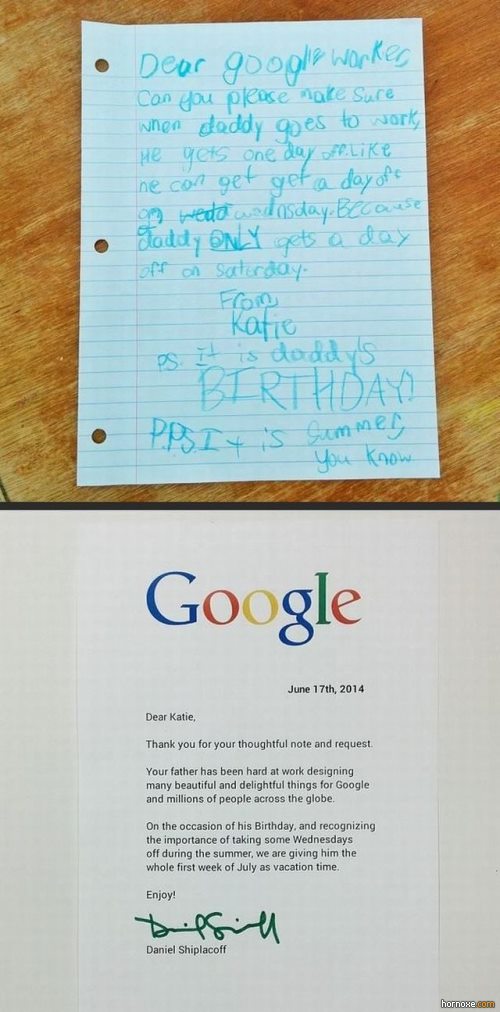 Dear google worker,
Can you please make sure
when daddy goes to work,
He gets one day off. Like
he can get get a day off
on wedd wednsday. Because
daddy ONLY gets a day
off on saturday.
From,
Katie
PS. It is daddy's
BIRTHDAY!
P.P.S. It is summer,
you know
Google
June 17th, 2014
Dear Katie,
Thank you for your thoughtful note and request.
Your father has been hard at work designing
many beautiful and delightful things for Google
and millions of people across the globe.
On the occasion of his Birthday, and recognizing
the importance of taking some Wednesdays
off during the summer, we are giving him the
whole first week of July as vacation time.
Enjoy!
Daniel Shiplacoff
hornoxe.com